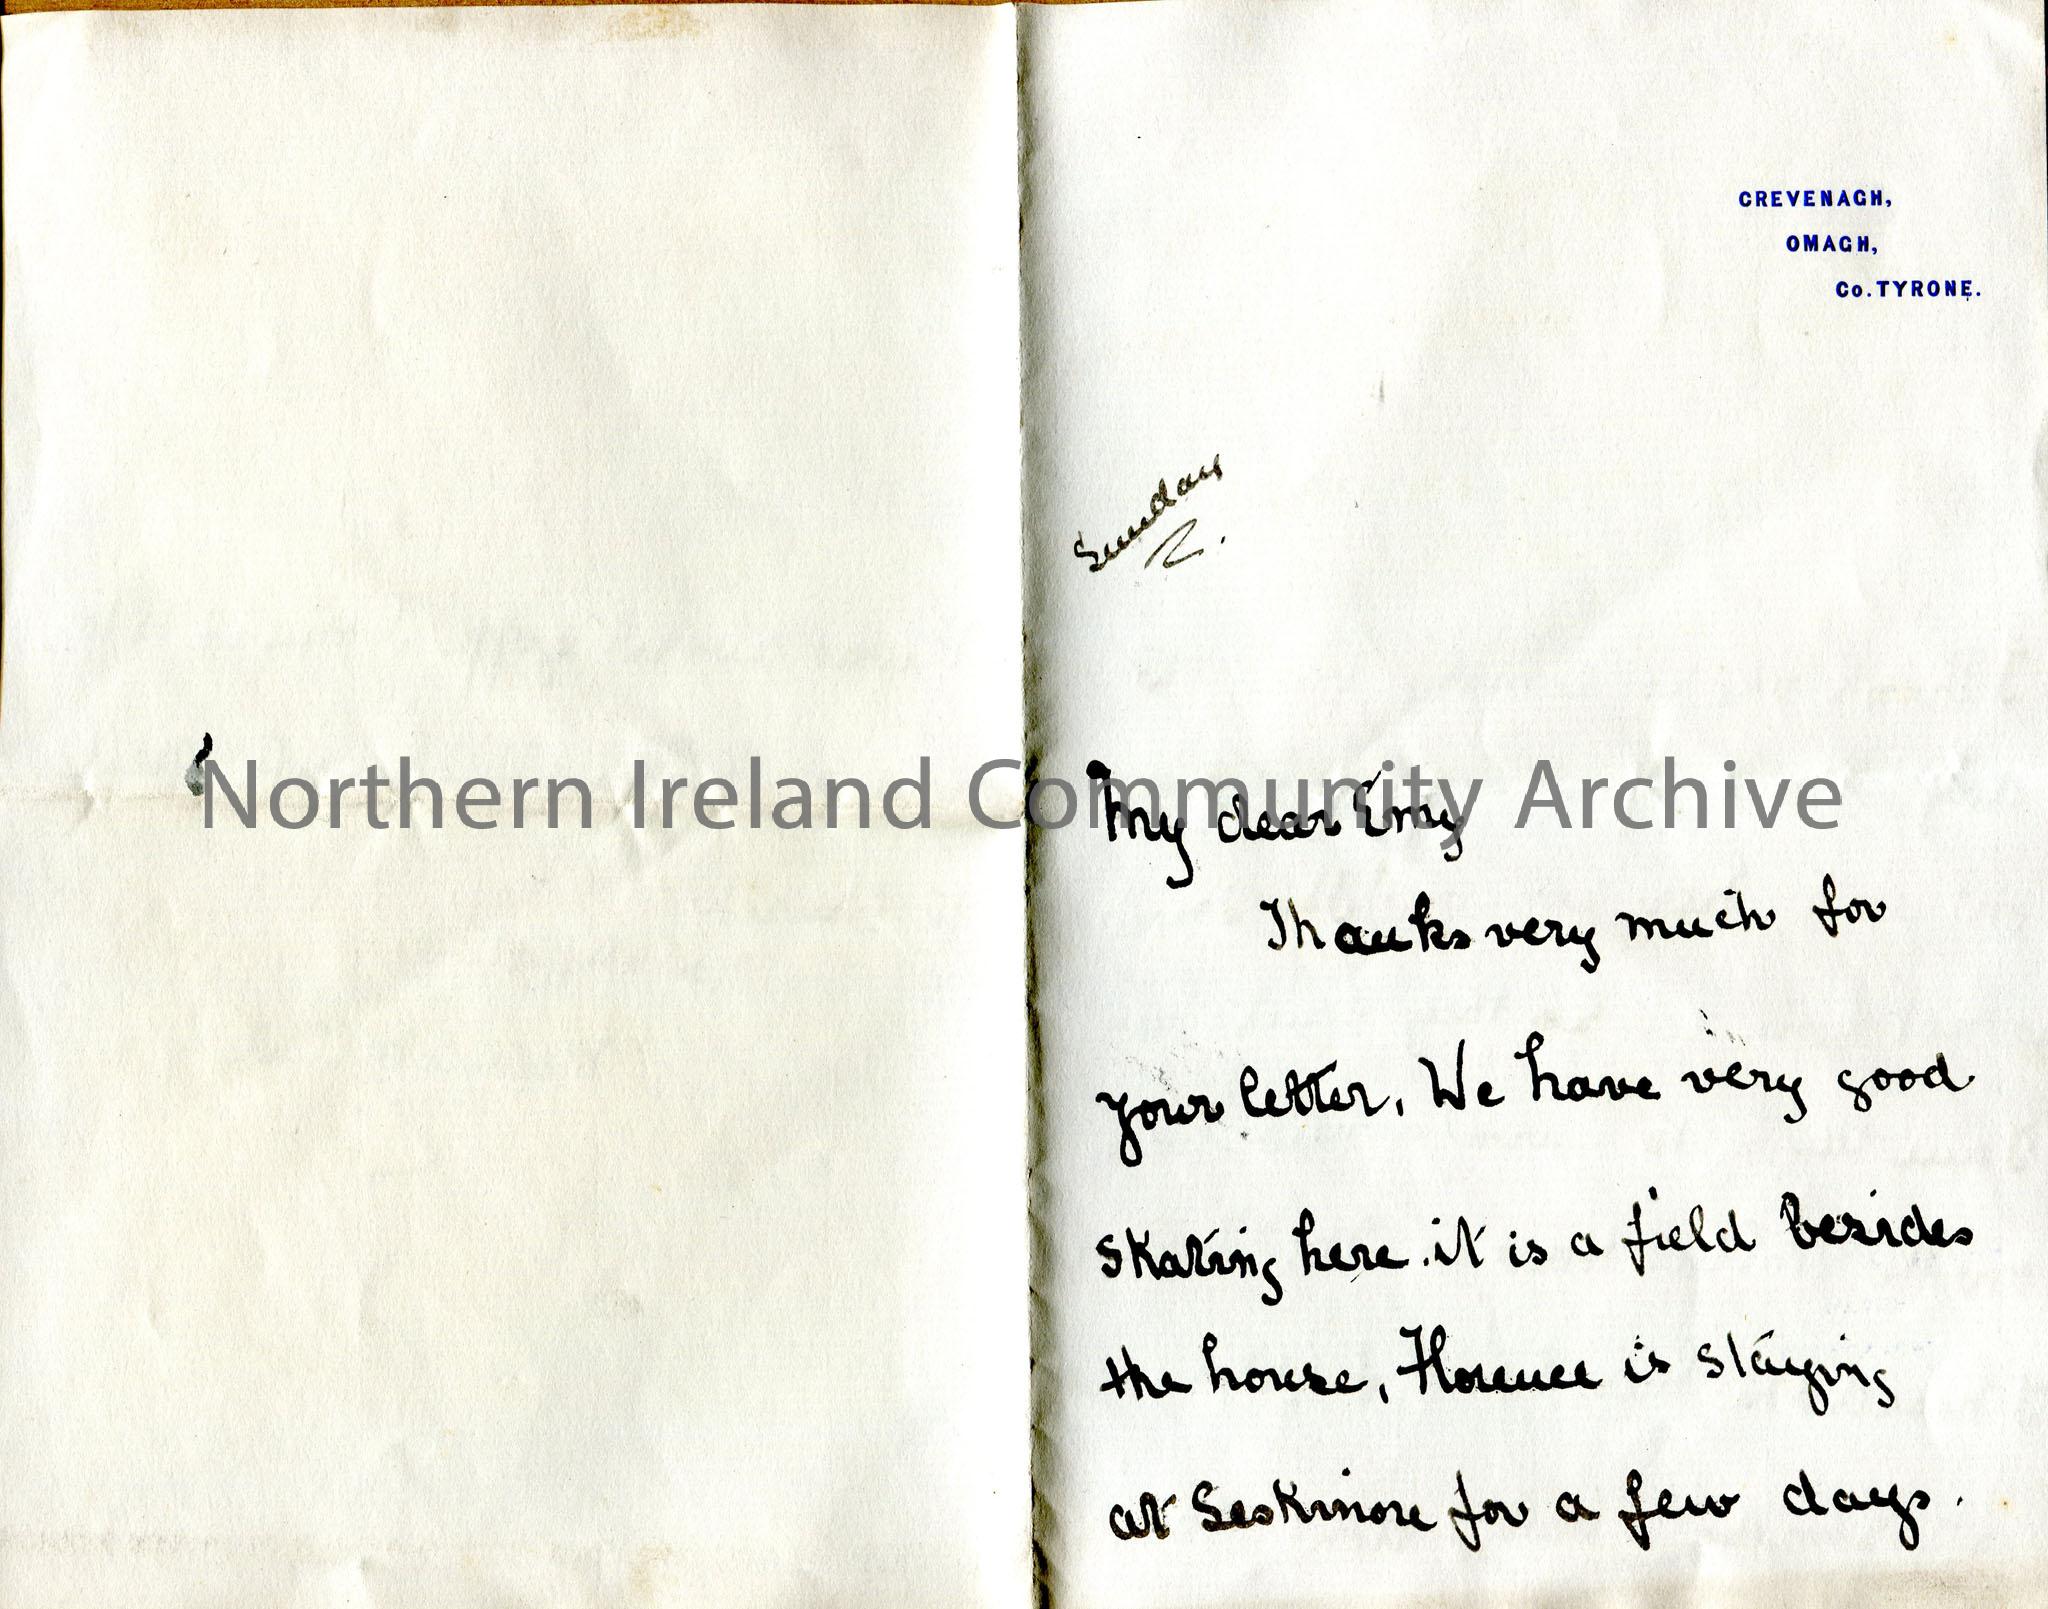 CREVENAGH,
OMAGH,
Co. TYRONE.
Sunday
Northern Ireland Community Archive
My dear Emy
Thanks very much for
your letter, We have very good
skating here. it is a field besides
the house, Florence is staying
at Seskinore for a few days.